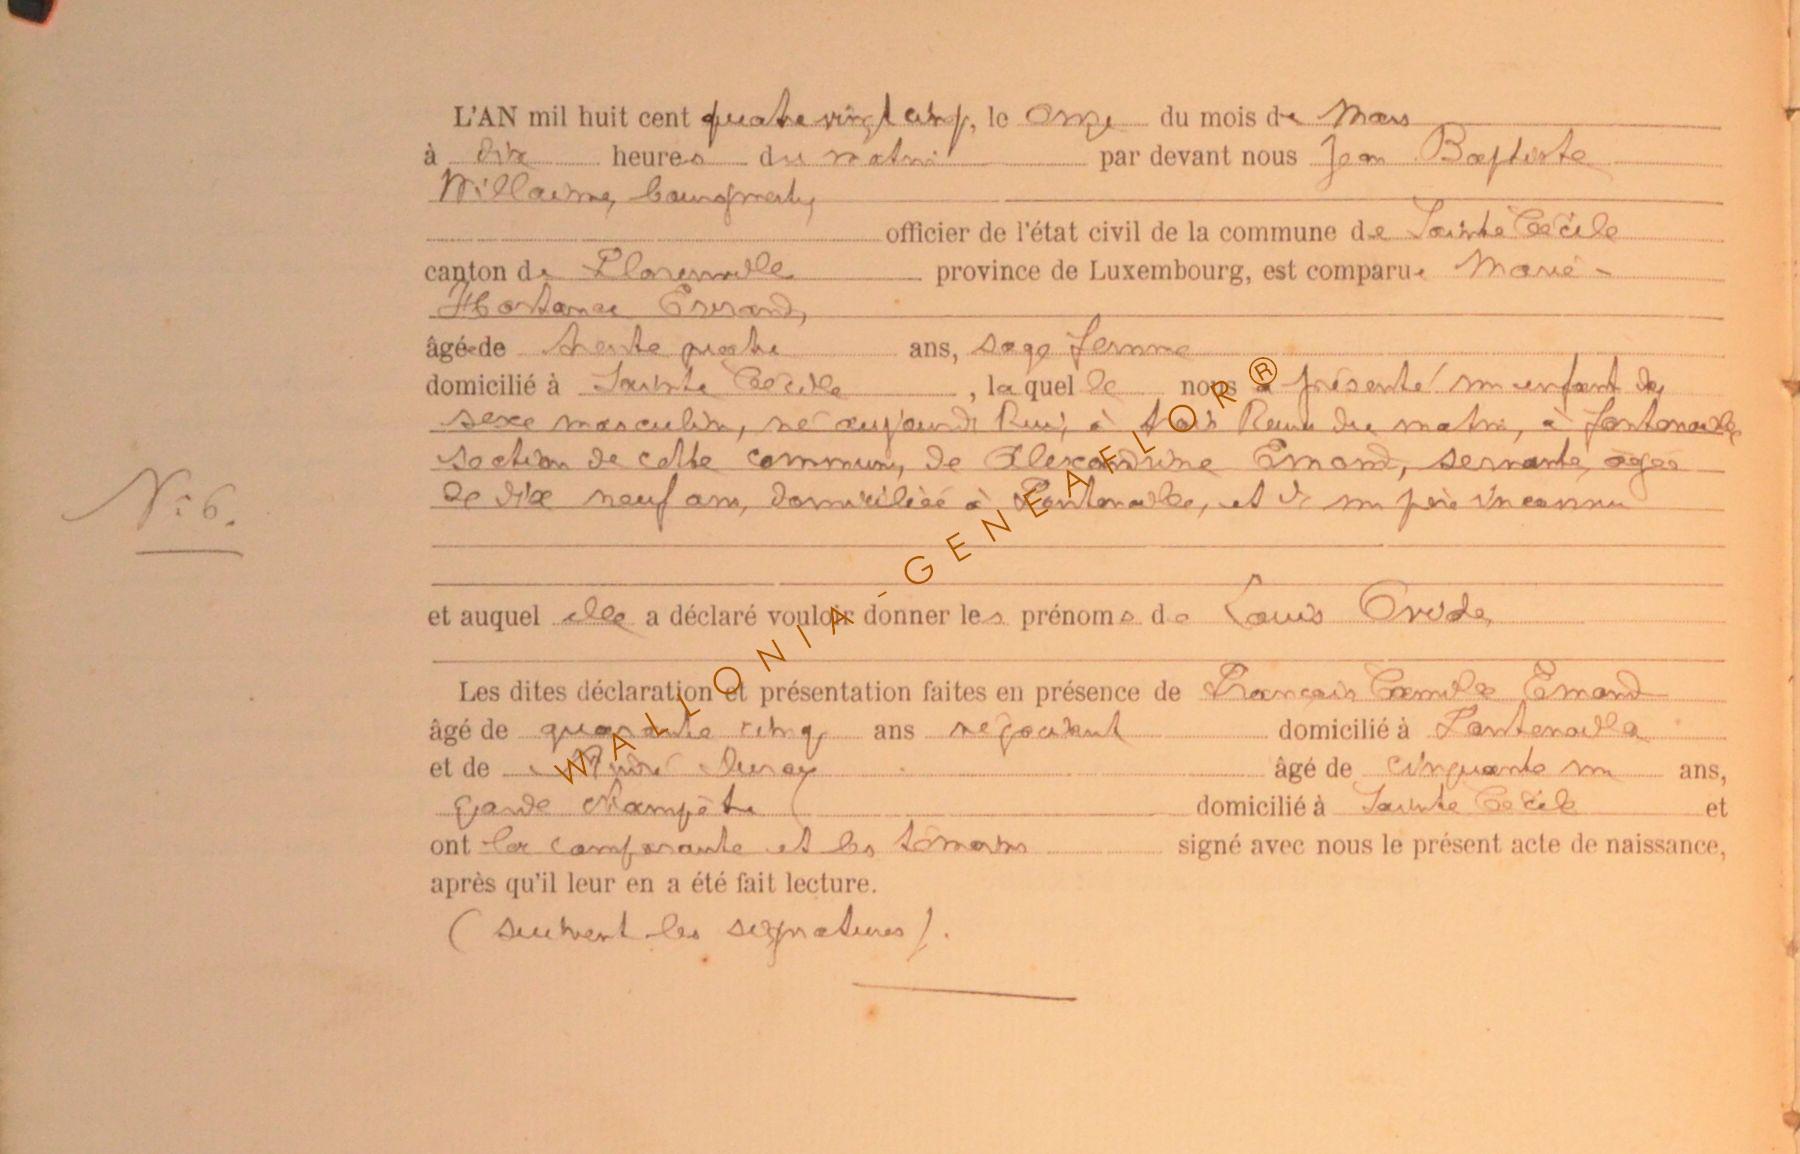 L'AN mil huit cent quatre vingt cinq, le onze du mois de Mars
à dix heures du matin par devant nous Jean Baptiste
Willaime, bourgmestre,
officier de l'état civil de la commune de Sainte Cécile
canton de Florenville province de Luxembourg, est comparue Marie-
Hortance Evrard,
âgée de trente quatre ans, sage femme
domicilié à Sainte Cécile, la quelle nous a présenté un enfant de
sexe masculin, né aujourd'hui, à trois heures du matin, à fontenoille
section de cette commune, de Alexandrine Emond, servante, agée
de dix neuf ans, domiciliée à Fontenoille, et de un père inconnu
N:6.
et auquel elle a déclaré vouloir donner les prénoms de Louis Ovide,
Les dites déclaration et présentation faites en présence de François Camille Emond
âgé de quarante cinq ans négociant domicilié à Fontenoille
et de André âgé de cinquante un ans,
garde champêtre domicilié à Sainte Cécile et
ont la comparante et les témoins signé avec nous le présent acte de naissance,
après qu'il leur en a été fait lecture.
(suivent les signatures).
WALLONIA - GENEAFLOR ®